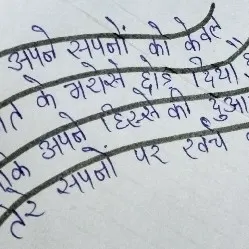 अपने सपनों को केवल
के भरोसे छोड़ दिया
अपने हिस्से की दुआ
तेरे सपनों पर खर्च